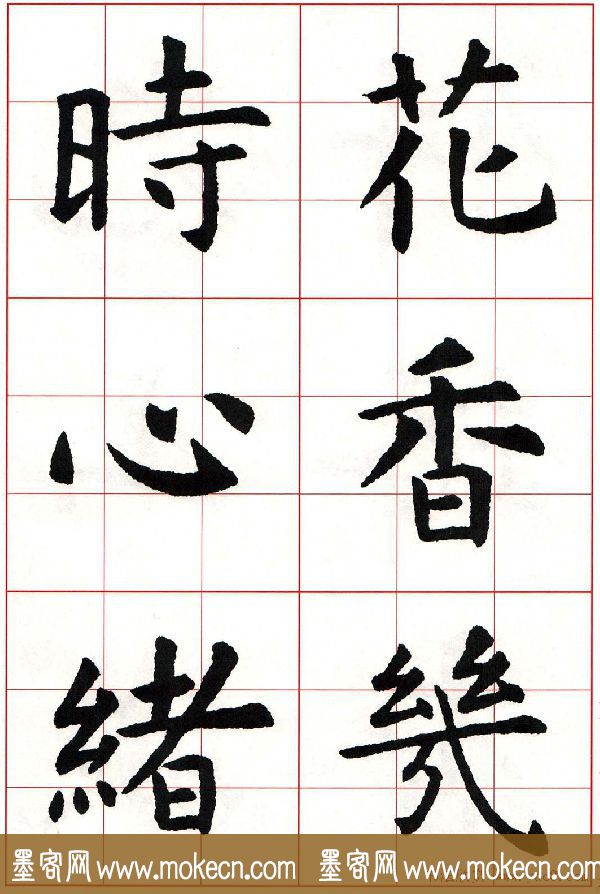 花香幾
時心緒
墨客网 www.mokecn.com 墨客网 www.mokecn.com